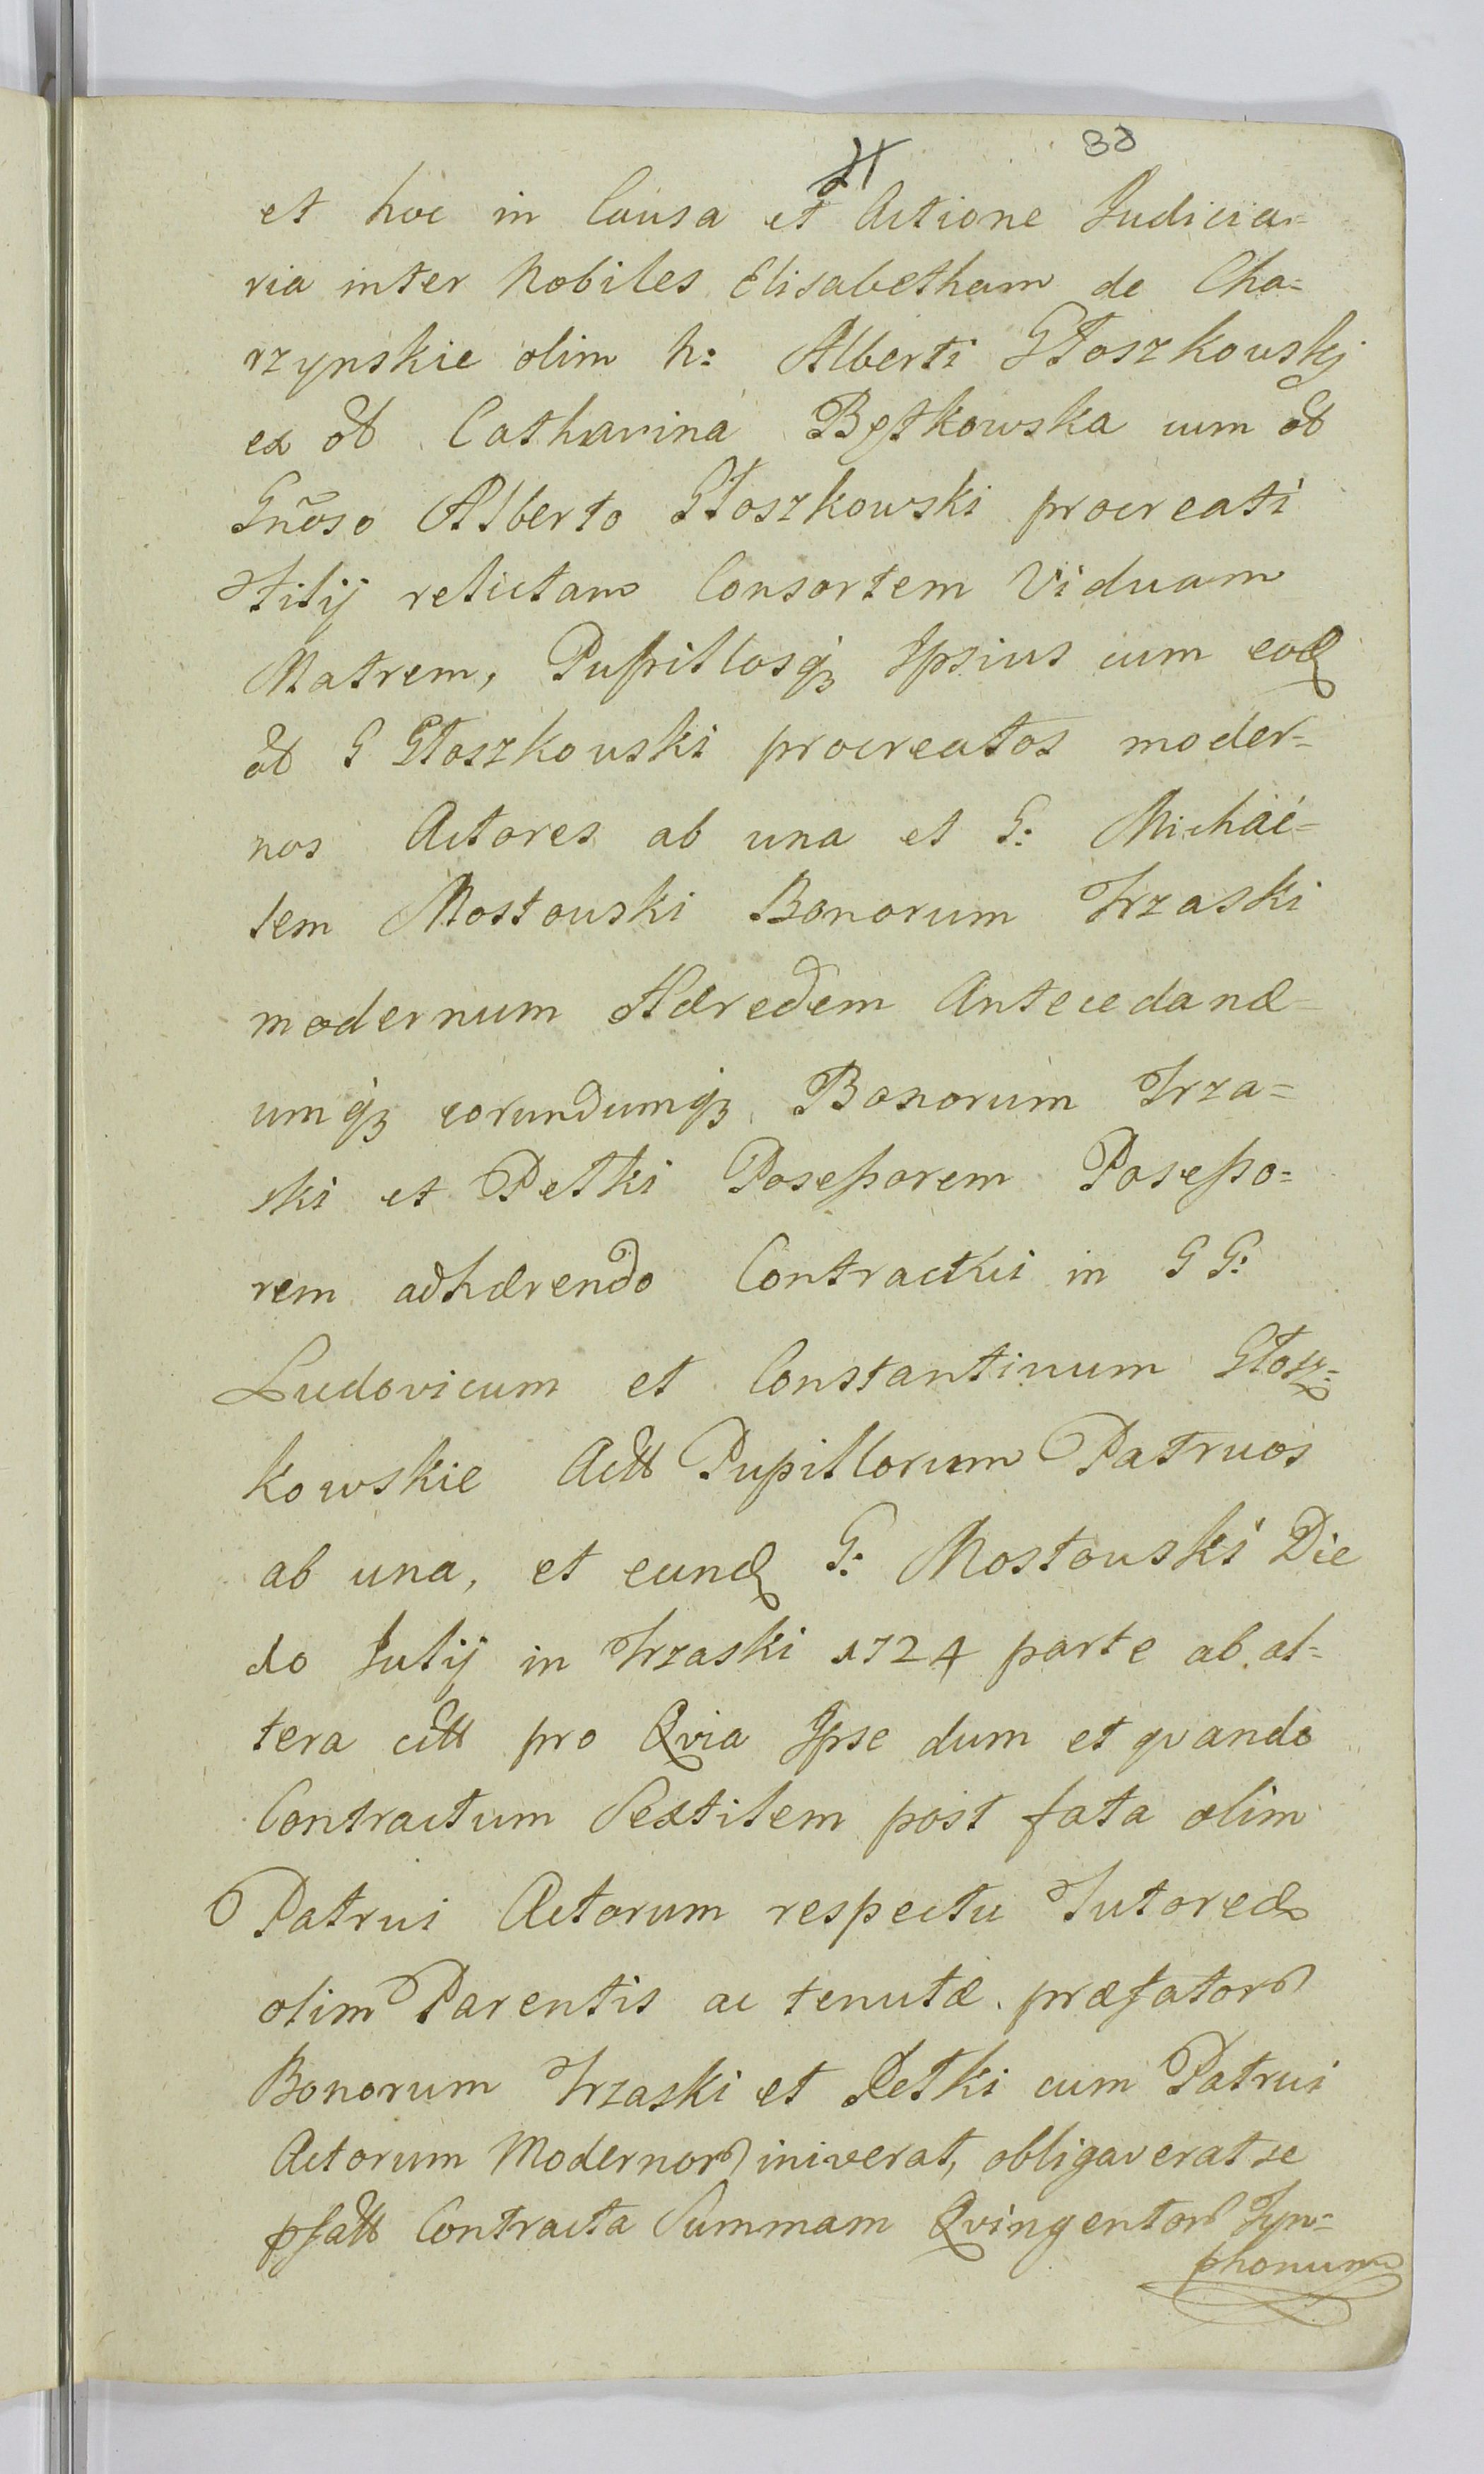 38
et hoc in Causa et Actione Judicia=
ria inter Nobiles Elisabetham de Cha=
rzynskie olim N: Alberti Głoszkowskj
ex olt Catharina Bętkowska cum olt
Gñoso Alberto Głoszkowski procreati
Filij relictam Consortem Viduam
Matrem, Pupillosqȝ Ipsius cum eod
olt G Głoszkowski procreatos moder=
nos Actores ab una et G: Michaé=
lem Mostowski Bonorum Trzaski
modernum Hæredem Antecedanæ=
umqȝ eorundumqȝ Bonorum Trza=
ski et Pełki Posessorem Posesso=
rem adhærendo Contractui in G G:
Ludovicum et Constantinum Głosz=
kowskie Actt Pupillorum Patruos
ab una, et eund G: Mostowski Die
do Julij in Trzaski 1724 parte ab al=
tera citt pro Qvia Ipse dum et qvando
Contractum Sextilem post fata olim
Patrui Actorum respectu
olim Parentis ac tenutæ præfator
Bonorum Trzaski et Pełki cum Patrui
Actorum Modernor iniverat, obligaverat se
pfatt Contracta Summam Qvingentor Tym=
phonum